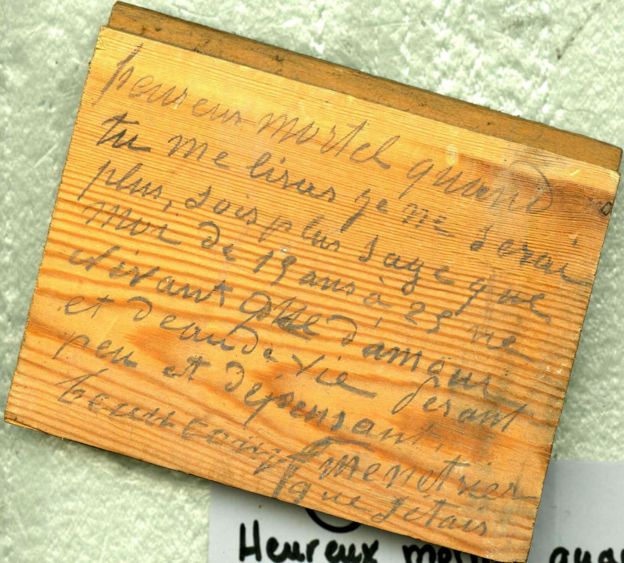 heureux mortel quand
tu me liras je ne serai
plus, sois plus sage que
moi de 19 ans à 25 ne
vivant que d'amour
et deau de vie fesant
peu et depensant
beaucoup menetrier
que jetais
Heureux